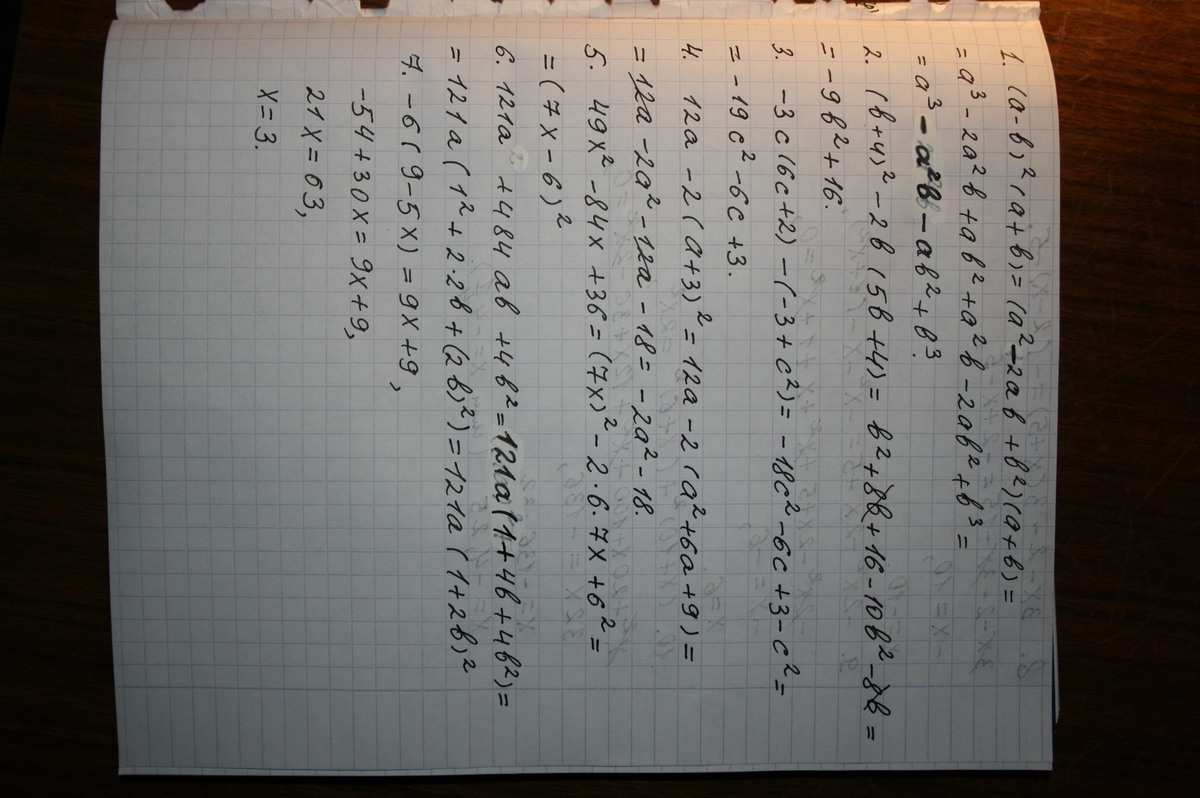 1. (a-b)²(a+b)=(a²-2ab+b²)(a+b)=
=a³-2a²b+ab²+a²b-2ab²+b³=
=a³-a²b-ab²+b³.
2. (b+4)²-2b(5b+4)=b²+8b+16-10b²-8b=
=-9b²+16.
3. -3c(6c+2)-(-3+c²)=-18c²-6c+3-c²=
=-19c²-6c+3.
4. 12a-2(a+3)²=12a-2(a²+6a+9)=
=12a-2a²-12a-18=-2a²-18.
5. 49x²-84x+36=(7x)²-2·6·7x+6²=
=(7x-6)²
6. 121a+484ab+4b²=121a(1+4b+4b²)=
=121a(1²+2·2b+(2b)²)=121a(1+2b)²
7. -6(9-5x)=9x+9,
-54+30x=9x+9,
21x=63,
x=3.